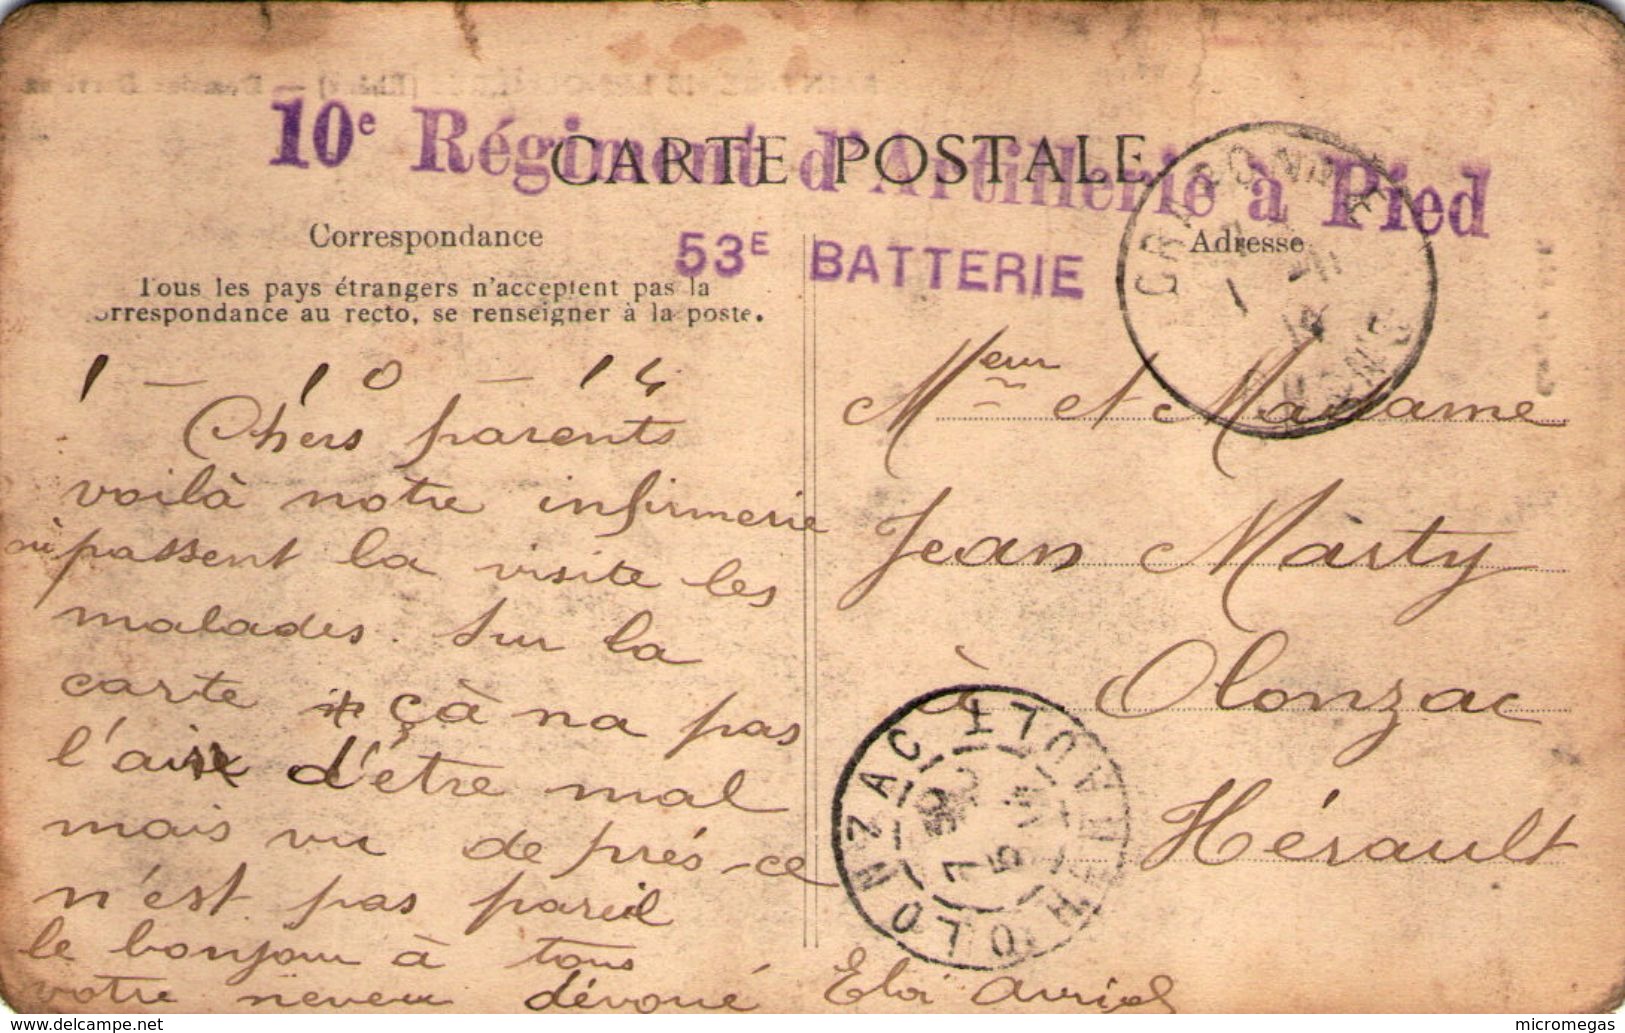 10e Régiment d'Artillerie à Pied
CARTE POSTALE
53E BATTERIE
Correspondance
Adresse
Tous les pays étrangers n'acceptent pas la
correspondance au recto, se renseigner à la poste.
1 - 10 - 14
Chers parents
voilà notre infirmerie
où passent la visite les
malades. Sur la
carte çà na pas
l'air d'être mal
mais vu de prés ce
n'est pas pareil
le bonjour à tous
votre neveu dévoué
Eloi
Meur et Madame
Jean Marty
à Olonzac
Hérault
CRAPONNE
RHONE
OLONZAC
HERAULT
delcampe.net
micromegas